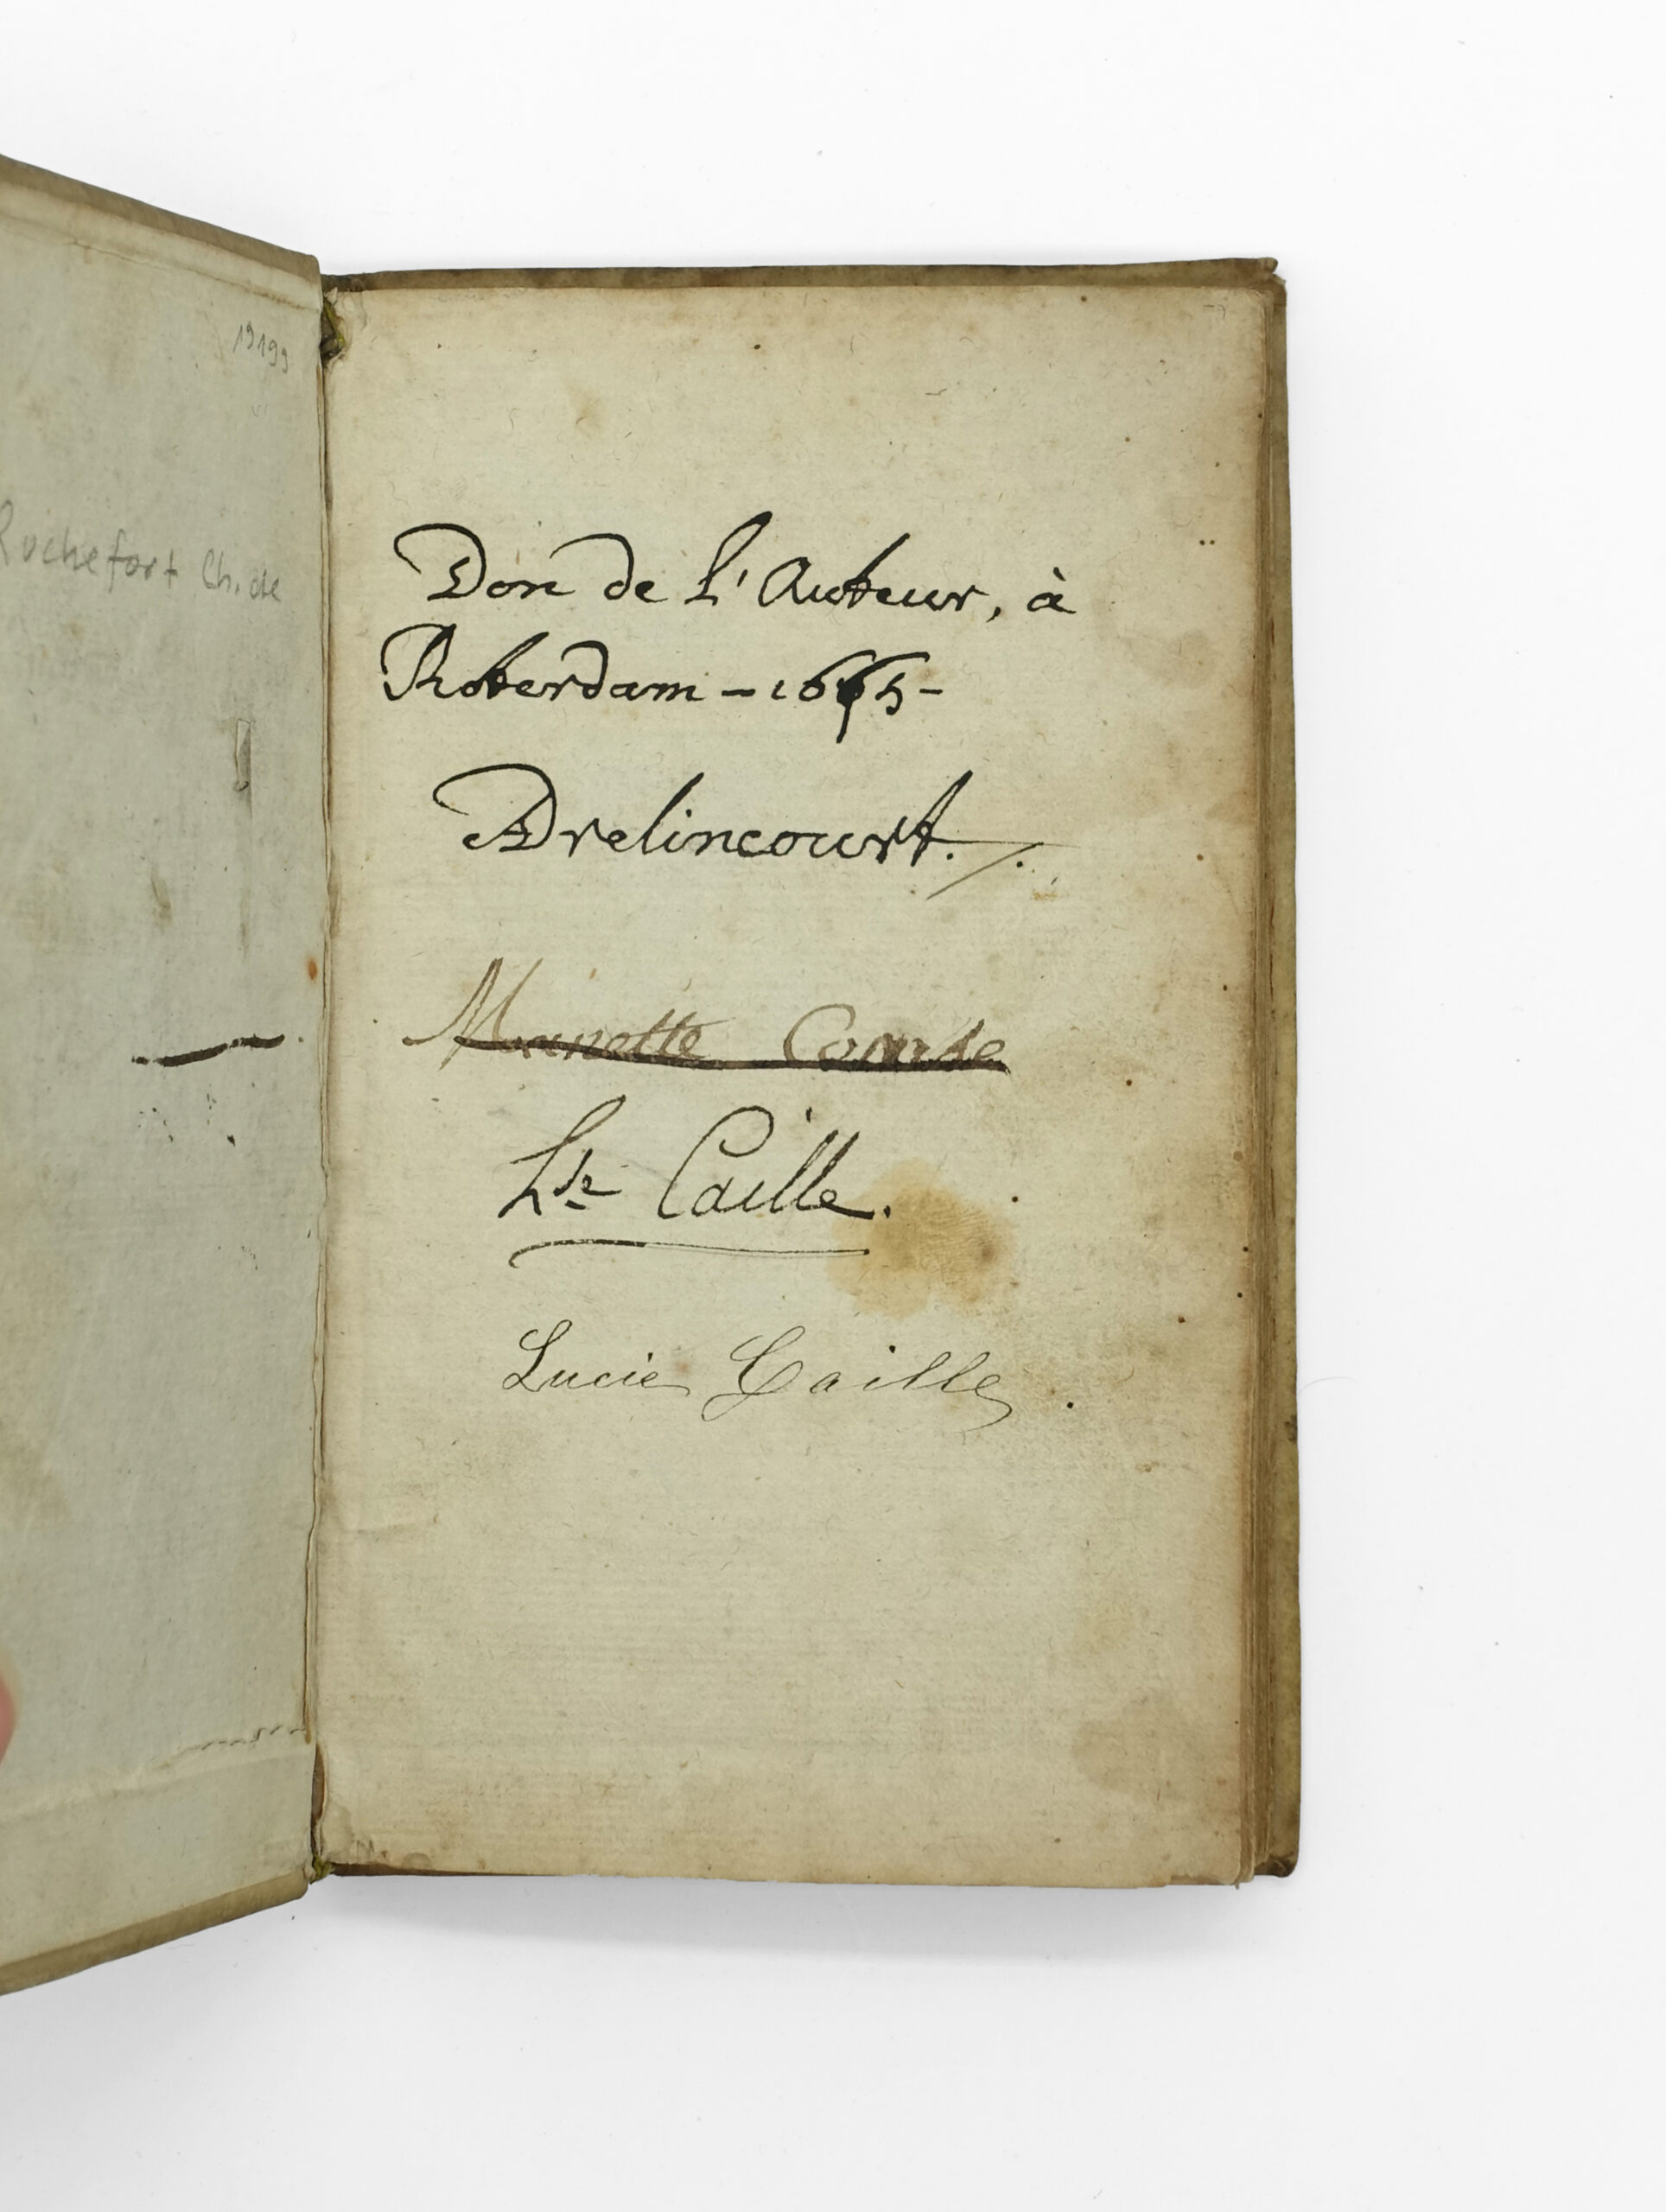 19199
Rochefort Ch. de
Don de l'Auteur, à
Roterdam - 1665 -
Drelincourt.
Nanette
Caille.
Lucie Caille